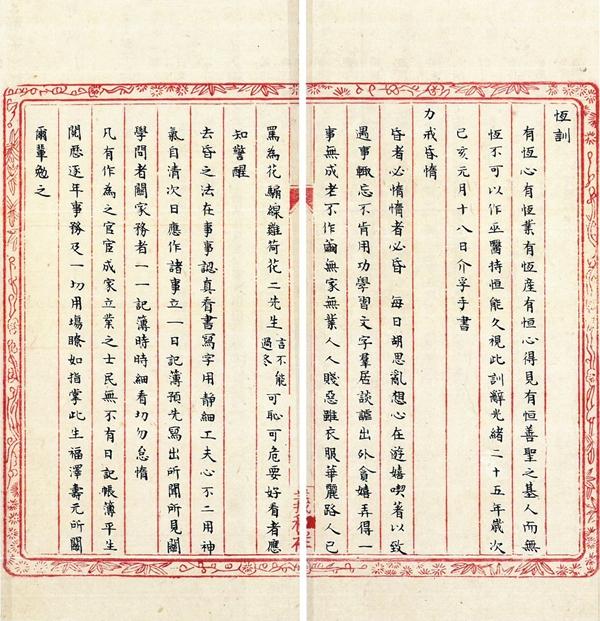 恆訓
有恆心有恆業有恆産有恒心得見有恒善聖之基人而無
恆不可以作巫醫持恒能久視此訓辭光緒二十五年歲次
己亥元月十八日介孚手書
力戒昏惰
昏者必惰惰者必昏 每日胡思亂想心在遊嬉喫著以致
遇事輒忘不肯用功學習文字羣居談謳出外貪嬉弄得一
事無成老不作繭無家無業人人賤惡雖衣服華麗路人已
罵為花騙線雞荷花二先生言不能過冬可恥可危要好看者應
知警醒
去昏之法在事事認真看書寫字用靜細工夫心不二用神
氣自清次日應作諸事立一日記簿預先寫出所聞所見關
學問者關家務者一一記簿時時細看切勿怠惰
凡有作為之官宦成家立業之士民無不有日記帳簿平生
閱歷逐年事務及一切用塲瞭如指掌此生福澤壽元所關
爾輩勉之